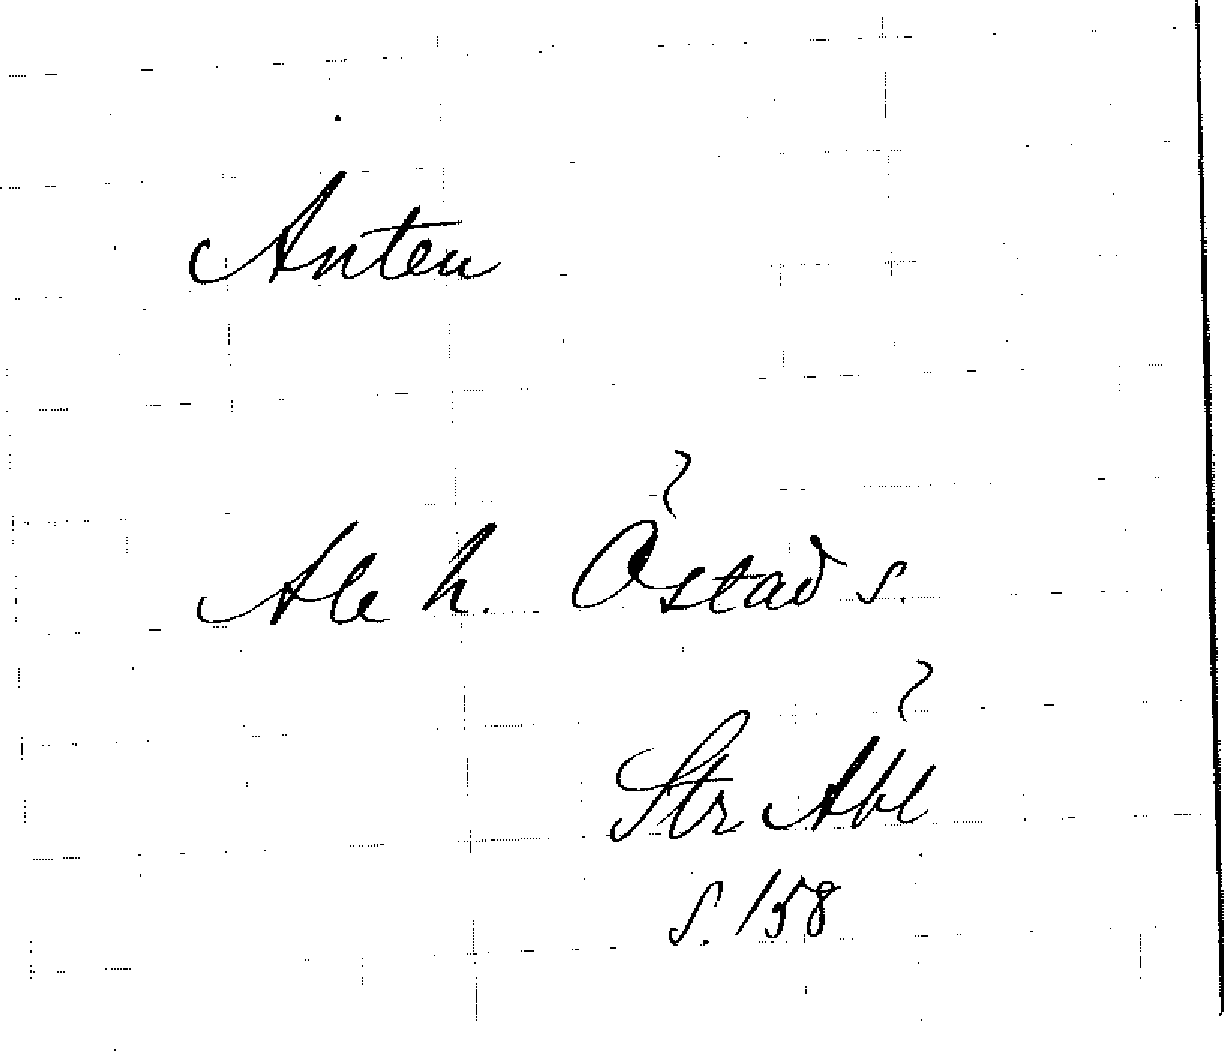 Anten
Ale h. Östad s.
Str Åbl
s. 158